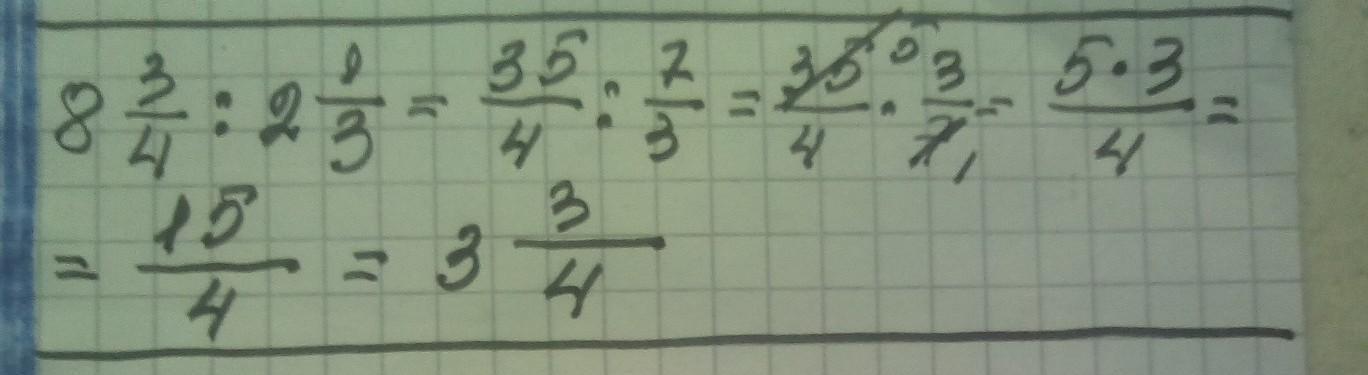 8 3/4 : 2 1/3 = 35/4 : 7/3 = 35 5/4 · 3/7 1 = 5·3/4 =
= 15/4 = 3 3/4